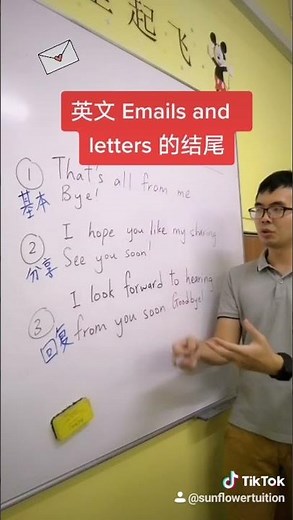 起飞
英文 Emails and
letters 的结尾
① That's all from me
基本 Bye!
② I hope you like my sharing
分享 See you soon!
I look forward to hearing
③ from you soon Goodbye!
回复
TikTok
@sunflowertuition